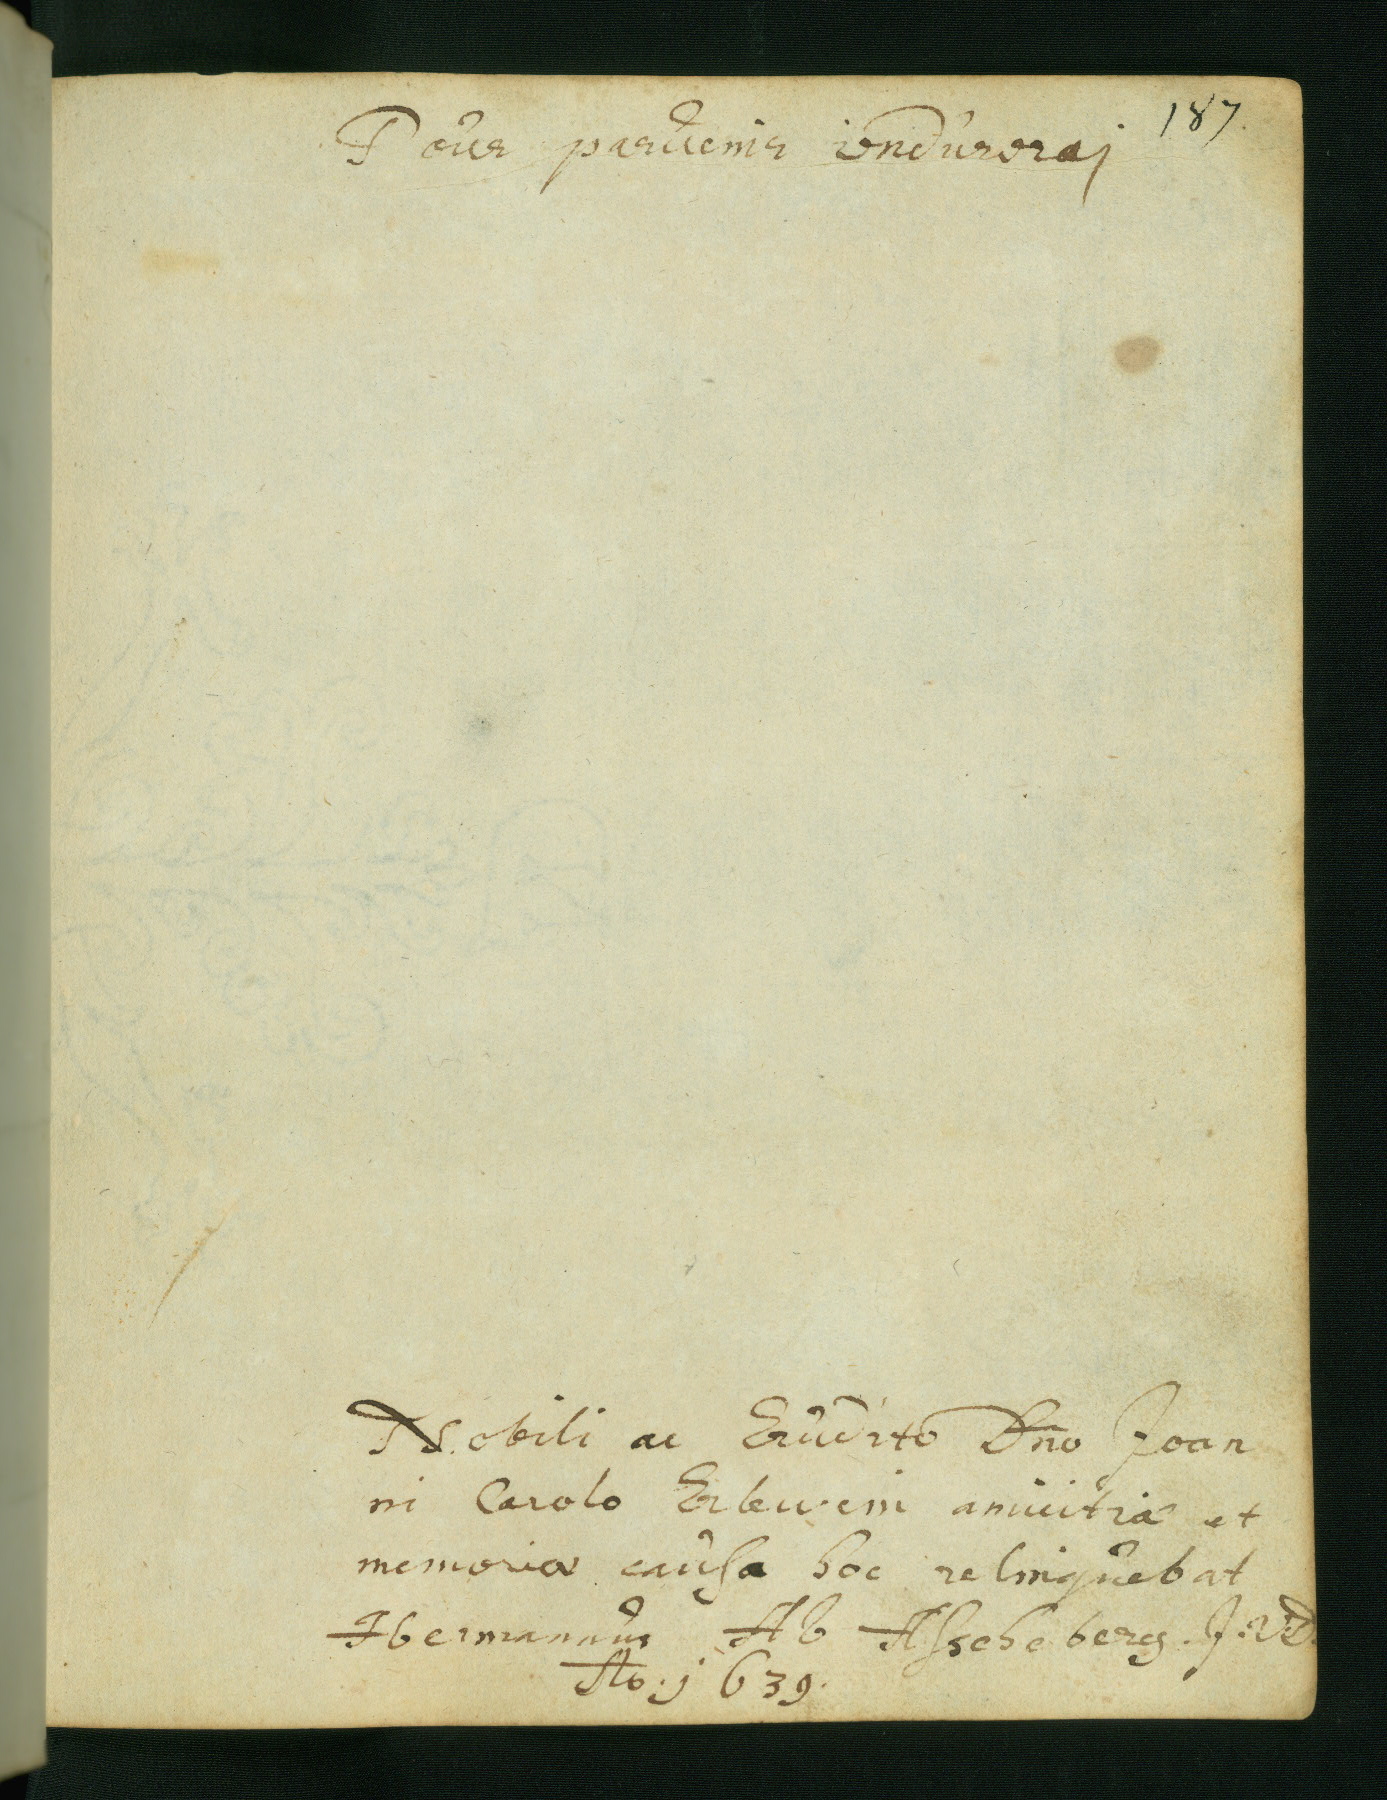 187.
Pour parvenir iendureraj
Nobili ac Erudito Dno Joan
ni Carolo Erlewein amicitiæ et
memoriæ causa hoc relinquebat
Hermannus Ab Asscheberg. J.V.D.
Ao. j639.